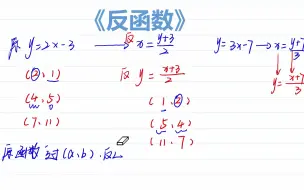 《反函数》
原 y=2x-3 反→ x=(y+3)/2 y=3x-7→x=(y+7)/3
(2,1) 反 y=(x+3)/2 (1,2) y=(x+7)/3
(4,5) (5,4)
(7,11) (11,7)
原函数 过(a,b).反